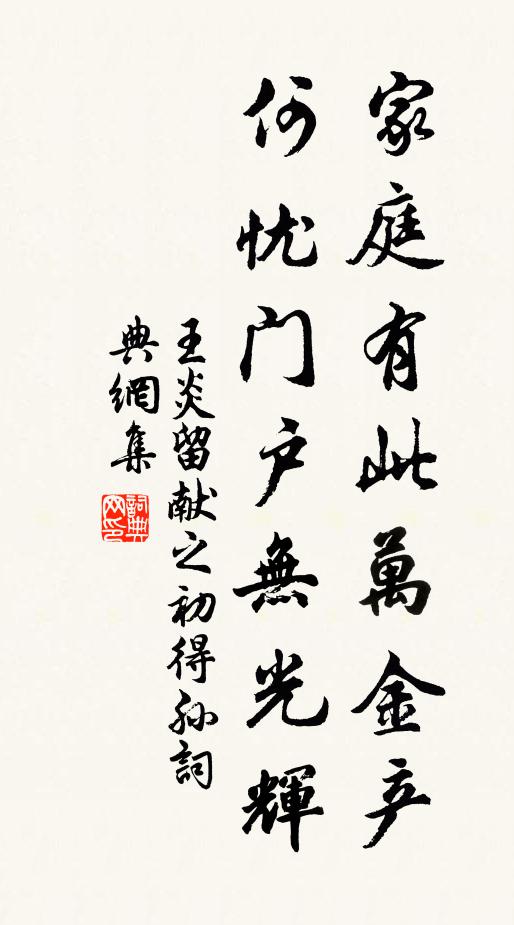 家庭有此萬金产
何忧门户無光輝
王炎留献之初得孙詞
典網集
詞典網印